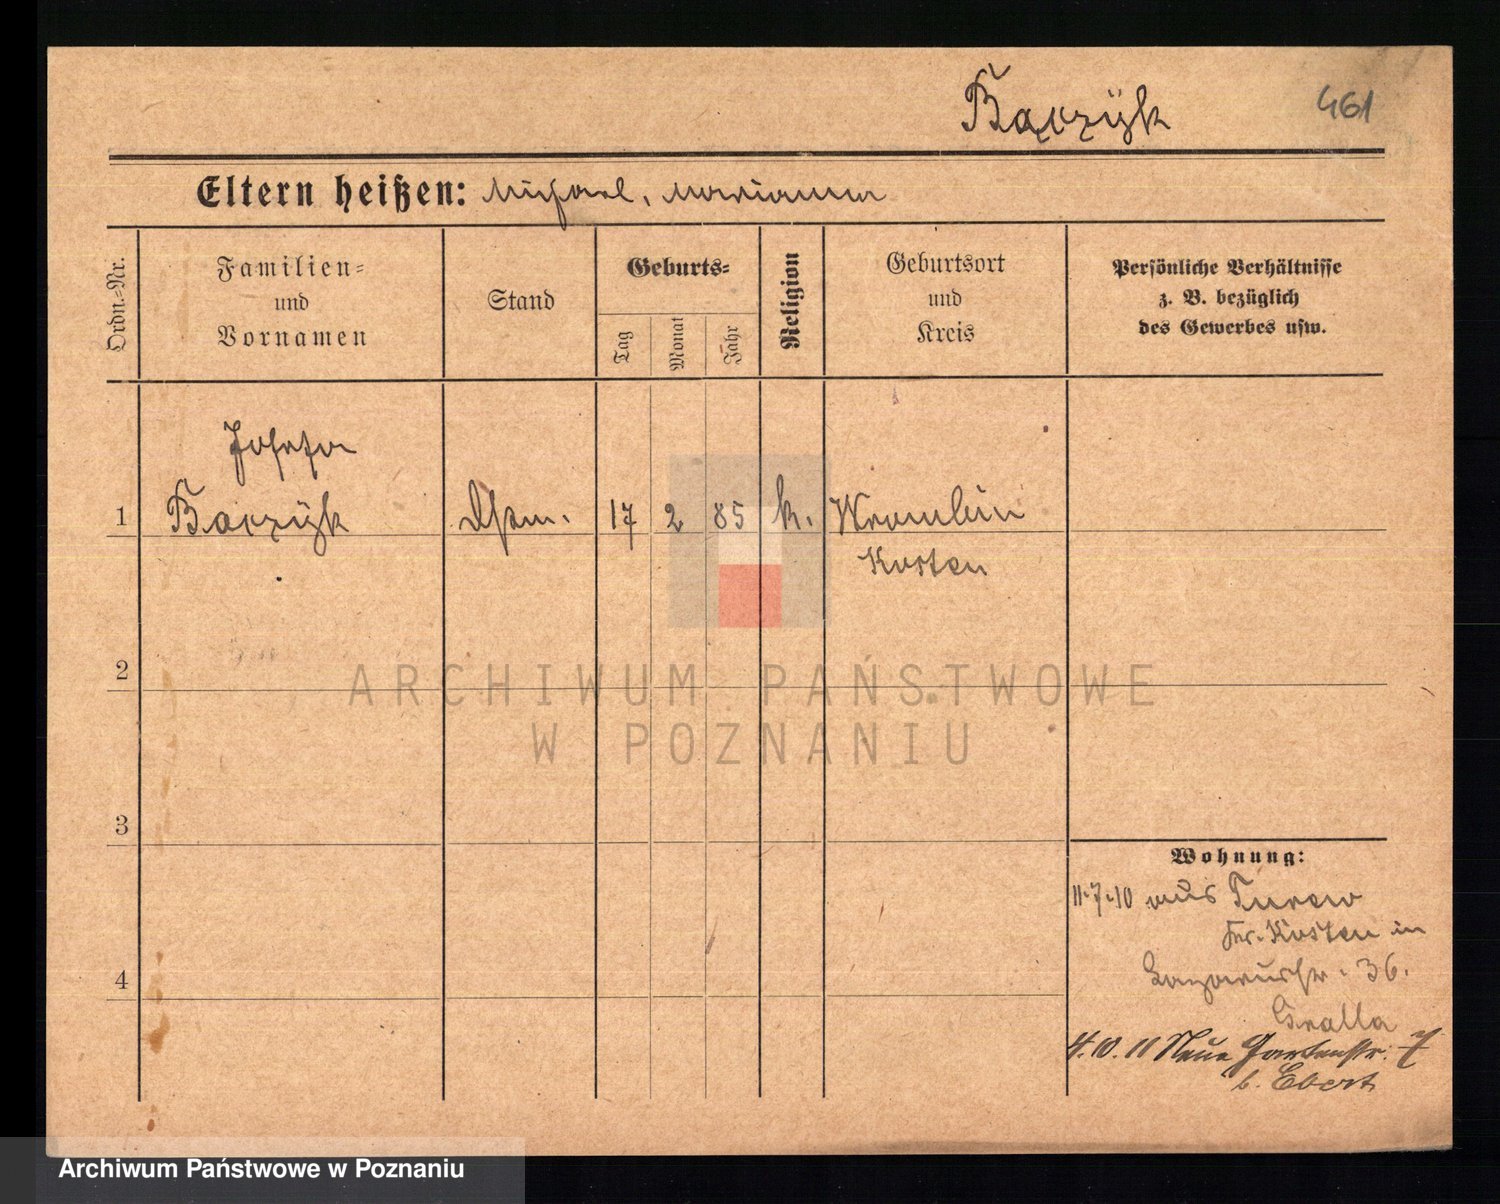 Bączyk
461
Eltern heißen: Michael, Marianna
Ordn.=Nr.
Familien=
und
Vornamen
Stand
Geburts=
Tag
Monat
Jahr
Religion
Geburtsort
und
Kreis
Persönliche Verhältnisse
z. B. bezüglich
des Gewerbes usw.
Josefa
1 Baczyk 17 2 85 k.
Kosten
2
3
4
Wohnung:
11.7.10 aus Turew
Kosten in
36.
Gralla
4. 10. 11 Neue Gartenstr. 7
b. Ebert
ARCHIWUM PAŃSTWOWE
W POZNANIU
Archiwum Państwowe w Poznaniu